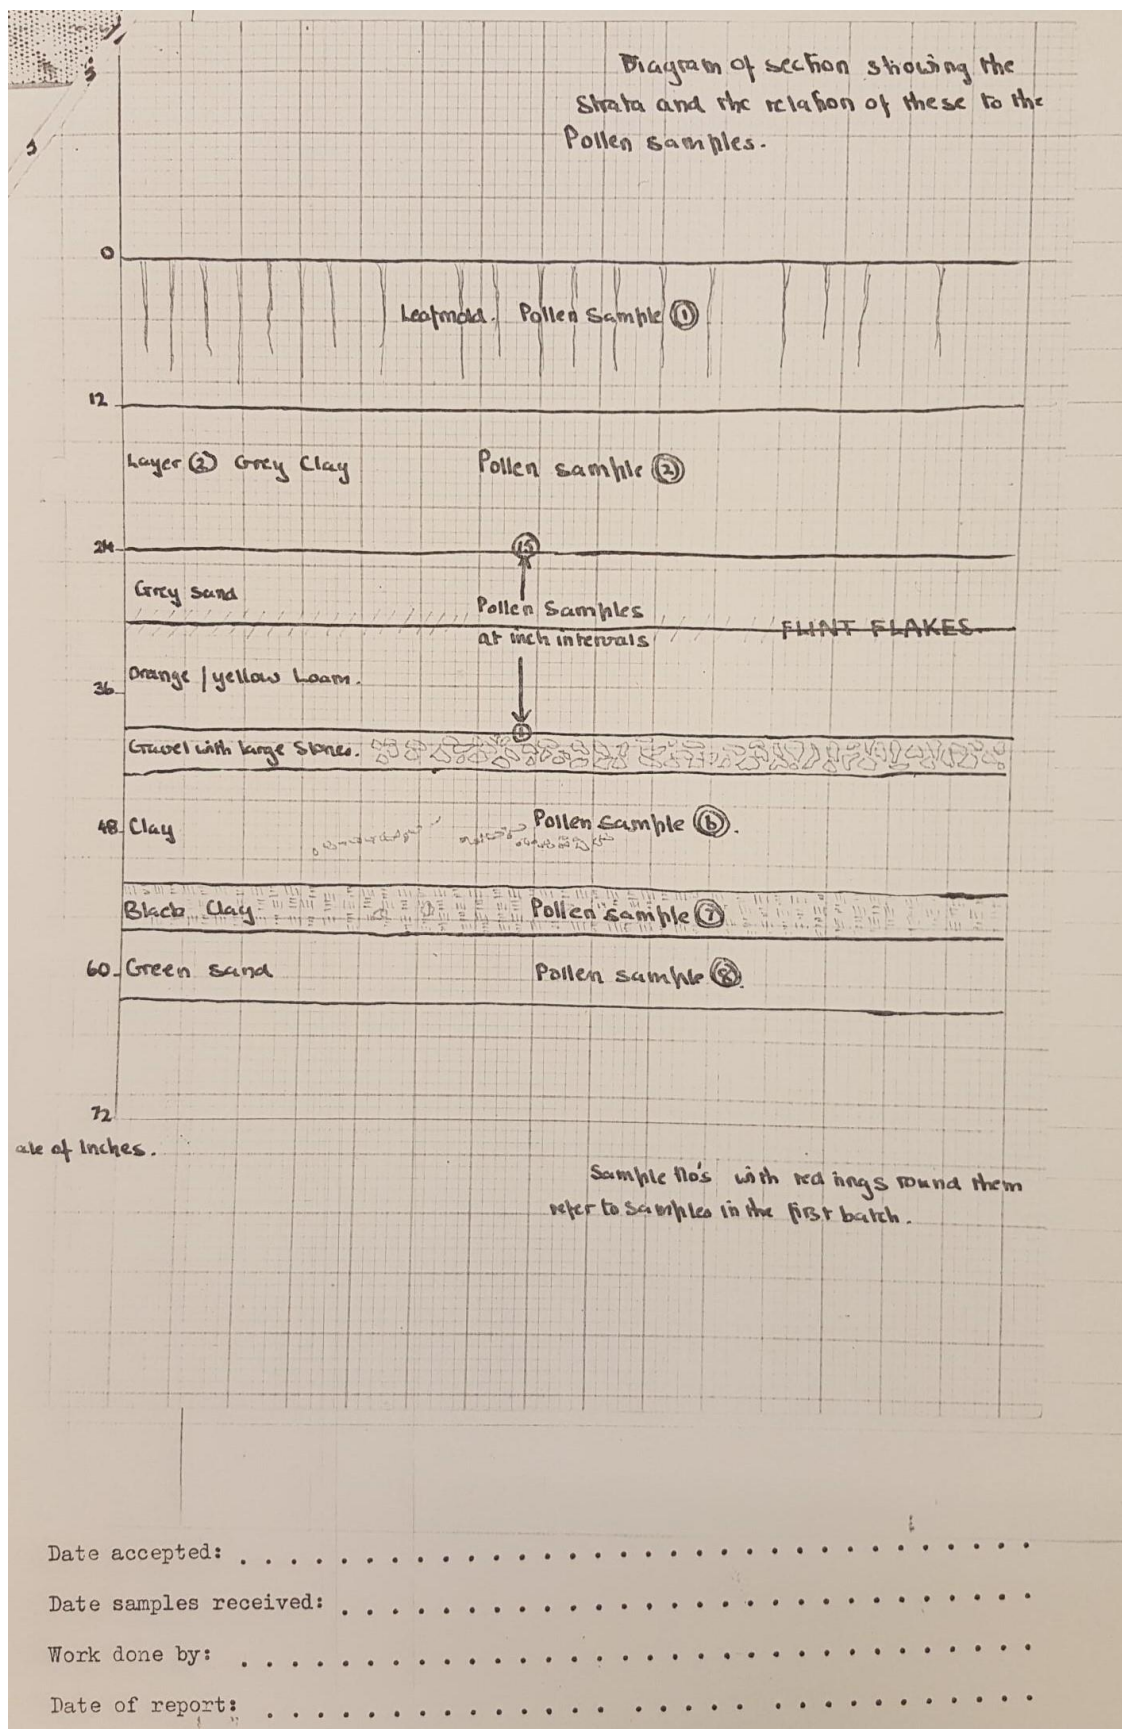 Diagram of section showing the
Strata and the relation of these to the
Pollen samples.
0
Leafmold. Pollen Sample 1
12
Layer 2 Grey Clay Pollen sample 2
24
15
Grey sand
Pollen Samples
FLINT FLAKES
at inch intervals
Orange / yellow Loam.
36
1
Gravel with large Stones.
48 Clay Pollen sample 6.
Black Clay Pollen sample 7
60 Green sand Pollen sample 8.
72
ale of Inches.
Sample No's with red rings round them
refer to Samples in the first batch.
Date accepted:
Date samples received:
Work done by:
Date of report: